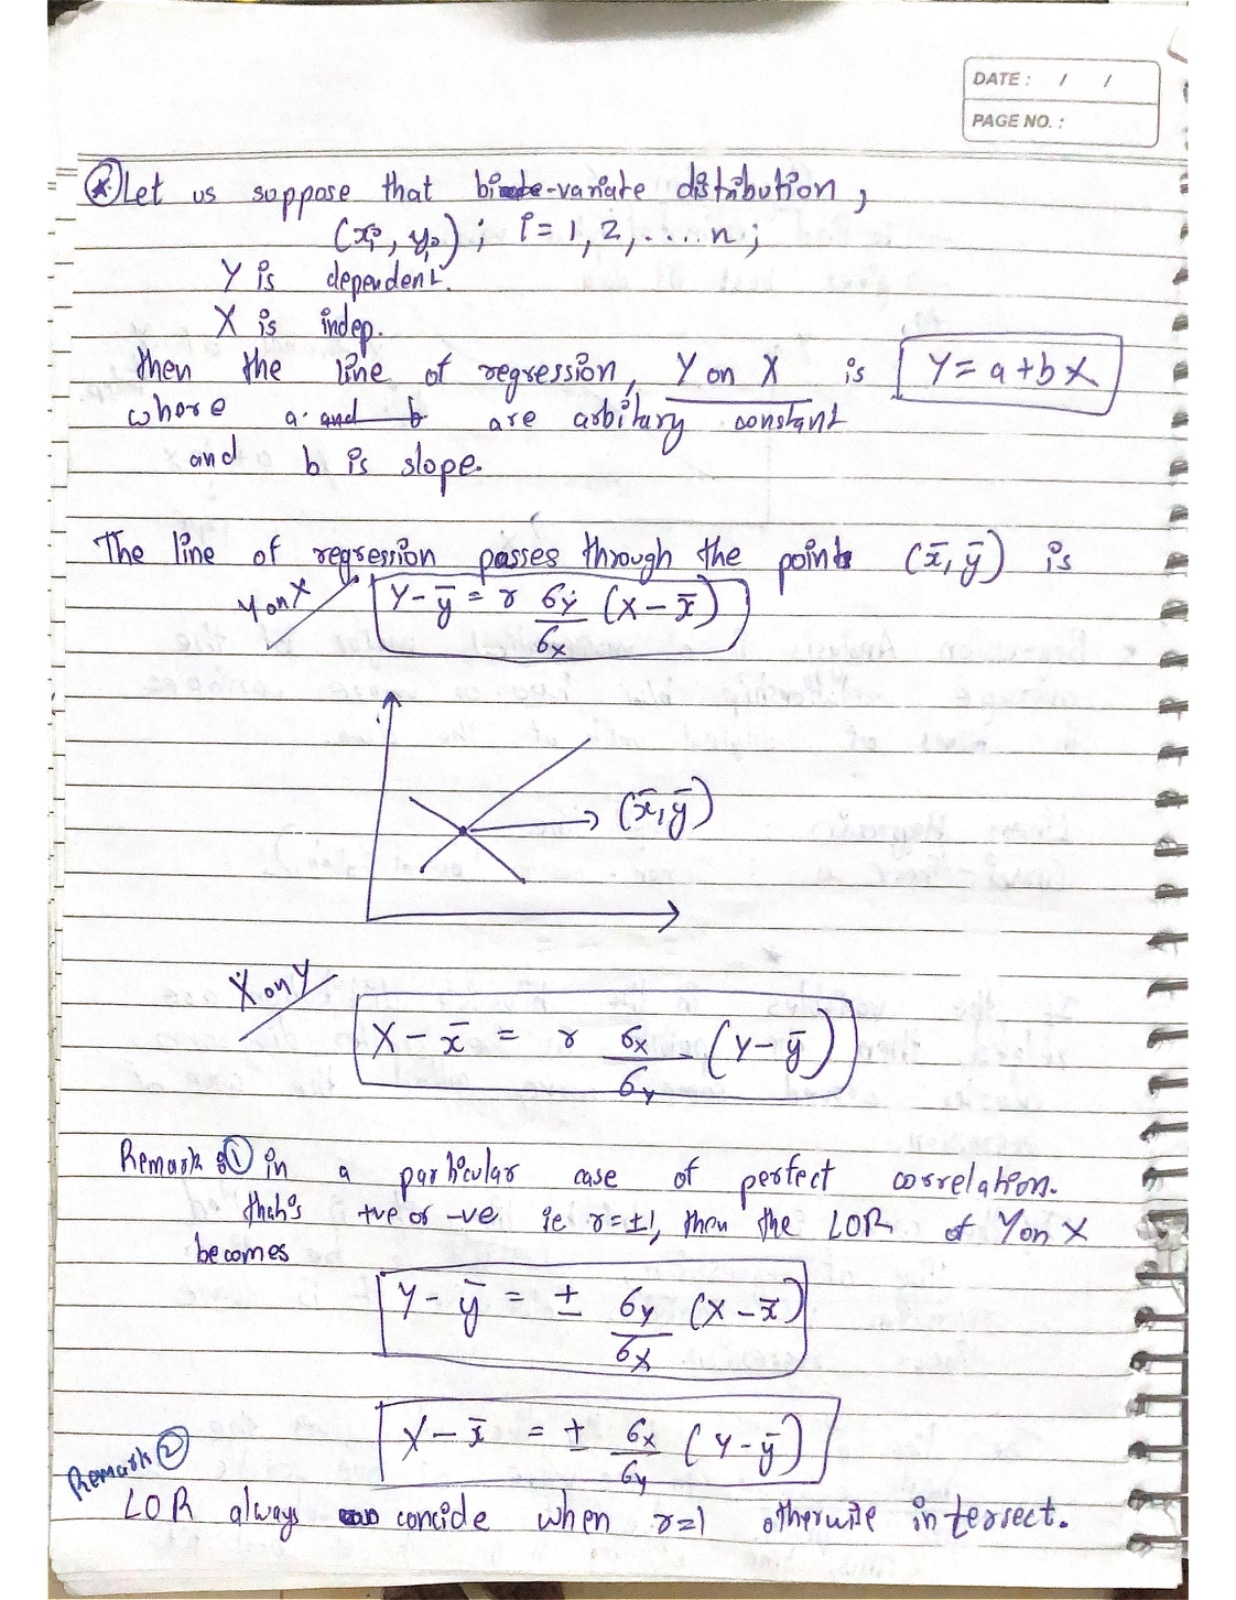 DATE: / /
PAGE NO. :
* Let us suppose that bi-variate distribution,
(xi, yi); i = 1, 2, .... n;
Y is dependent.
X is indep.
then the line of regression, Y on X is Y = a + b X
where a and b are arbitary constant
and b is slope.
The line of regression passes through the point (x̄, ȳ) is
Y on X Y - ȳ = r σy/σx (X - x̄)
(x̄, ȳ)
X on Y
X - x̄ = r σx/σy (Y - ȳ)
Remark ① in a particular case of perfect correlation.
that's +ve or -ve ie r = ±1, then the LOR of Y on X
becomes
Y - ȳ = ± σy/σx (X - x̄)
X - x̄ = ± σx/σy (Y - ȳ)
Remark ②
LOR always concide when r=1 otherwise intersect.